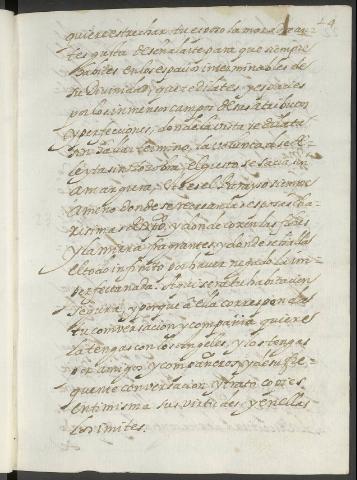 24
quiere estrechar tu espoʒo la morada an-
tes gusta deseñalarte para que siempre
habites en los espacios interminables de
su Divinidad, que te dilates, y espacies
por los inmensos campos de sus atributos
y perfecciones, donde la vista se dilata
sin hallar termino, la voluntad se de-
leyta sin çoçobra, el gusto se sacia sin
amargura. este es el Parayso siempre
ameno donde se recrean las esposas cha-
risimas de Xpõ. y donde cogen las flores
y la mirra fragrantes, y donde se halla
el todo infinito por haver negado la im-
perfecta nada. Aqui sera tu habitacion
segura, y porque à ella corresponda
tu conversacion y compañia quiero
la tengas con los Angeles, y los tengas
por amigos, y compañeros, y de su fre-
quente conversacion y trato copies
en ti misma sus virtudes y en ellas
los imites.